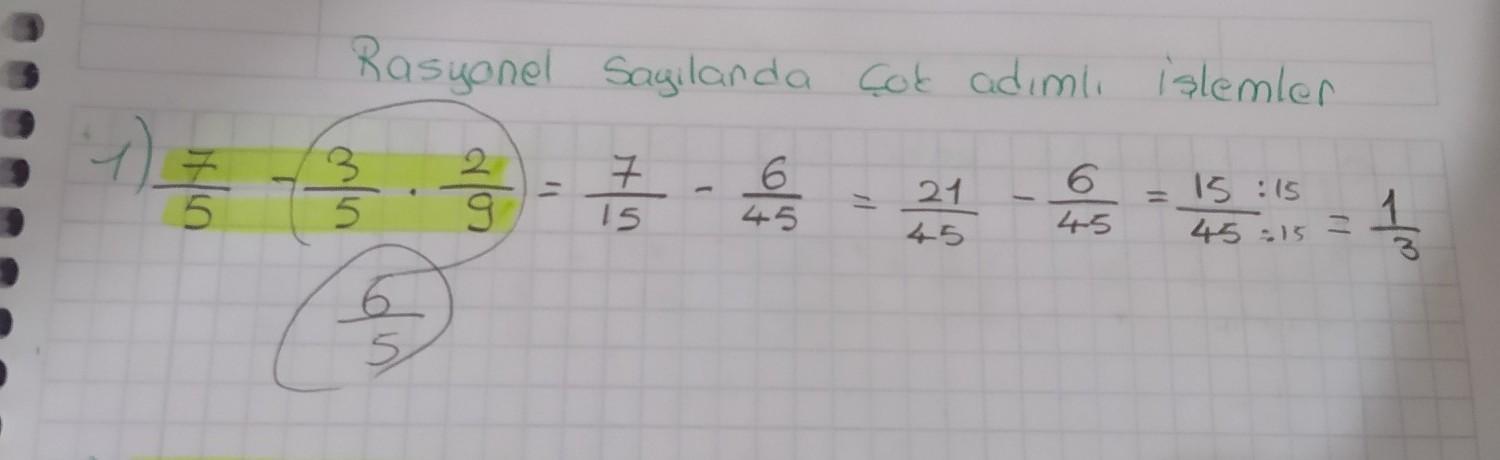 Rasyonel Sayılanda Çok adımlı işlemler
1) 7/5 - 3/5 . 2/9 = 7/15 - 6/45 = 21/45 - 6/45 = 15/45 :15 :15 = 1/3
6/5